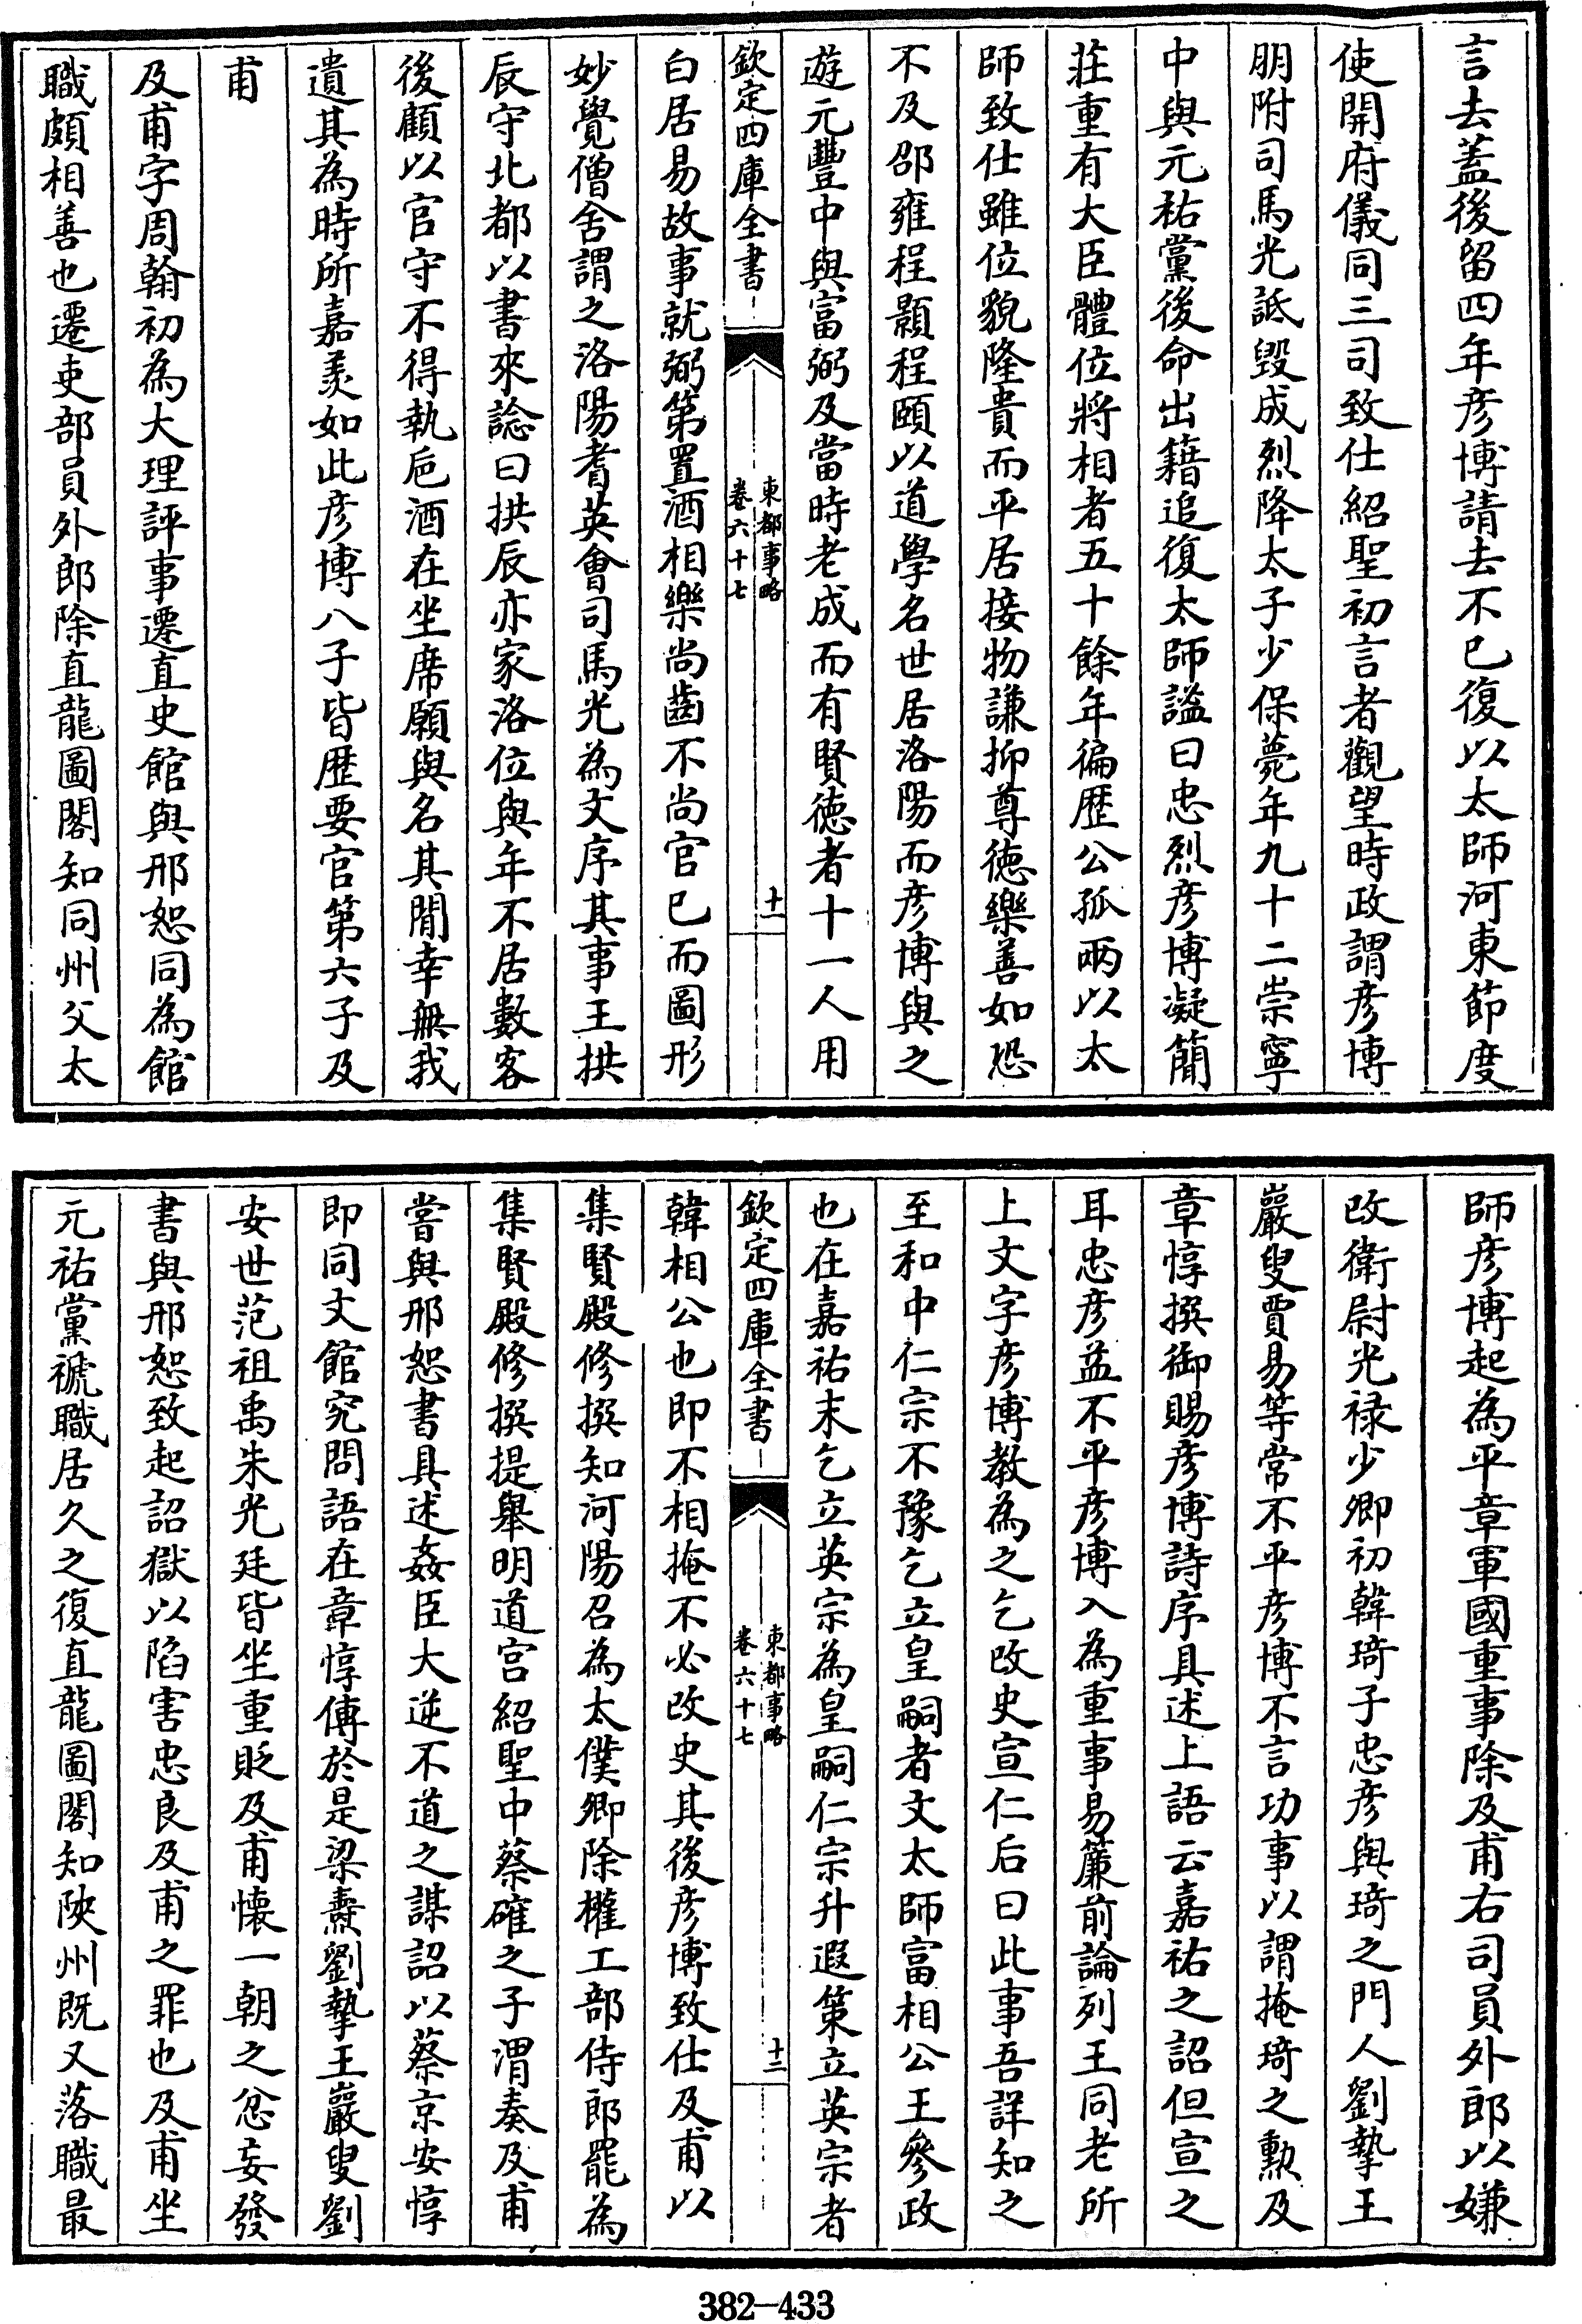 言去蓋後留四年彦博請去不已復以太師河東節度
使開府儀同三司致仕紹聖初言者觀望時政謂彦博
朋附司馬光詆毀成烈降太子少保薨年九十二崇寧
中與元祐黨後命出籍追復太師謚曰忠烈彦博凝簡
莊重有大臣體位將相者五十餘年徧歴公孤兩以太
師致仕雖位貌隆貴而平居接物謙抑尊徳樂善如恐
不及邵雍程顥程頤以道學名世居洛陽而彦博與之
遊元豐中與富弼及當時老成而有賢徳者十一人用
欽定四庫全書
東都事略
卷六十七
十一
白居易故事就弼第置酒相樂尚齒不尚官已而圖形
妙覺僧舍謂之洛陽耆英會司馬光為文序其事王拱
辰守北都以書來諗曰拱辰亦家洛位與年不居數客
後顧以官守不得執巵酒在坐席願與名其間幸無我
遺其為時所嘉羨如此彦博八子皆歴要官第六子及
甫
及甫字周翰初為大理評事遷直史館與邢恕同為館
職頗相善也遷吏部員外郎除直龍圖閣知同州父太
師彦博起為平章軍國重事除及甫右司員外郎以嫌
改衛尉光禄少卿初韓琦子忠彦與琦之門人劉摯王
巖叟賈易等常不平彦博不言功事以謂掩琦之勲及
章惇撰御賜彦博詩序具述上語云嘉祐之詔但宣之
耳忠彦益不平彦博入為重事易簾前論列王同老所
上文字彦博教為之乞改史宣仁后曰此事吾詳知之
至和中仁宗不豫乞立皇嗣者文太師富相公王參政
也在嘉祐末乞立英宗為皇嗣仁宗升遐策立英宗者
欽定四庫全書
東都事略
卷六十七
十二
韓相公也即不相掩不必改史其後彦博致仕及甫以
集賢殿修撰知河陽召為太僕卿除權工部侍郎罷為
集賢殿修撰提舉明道宫紹聖中蔡確之子渭奏及甫
嘗與邢恕書具述姦臣大逆不道之謀詔以蔡京安惇
即同文館究問語在章惇傳於是梁燾劉摯王巖叟劉
安世范祖禹朱光廷皆坐重貶及甫懐一朝之忿妄發
書與邢恕致起詔獄以陷害忠良及甫之罪也及甫坐
元祐黨禠職居久之復直龍圖閣知陜州既又落職最
382-433